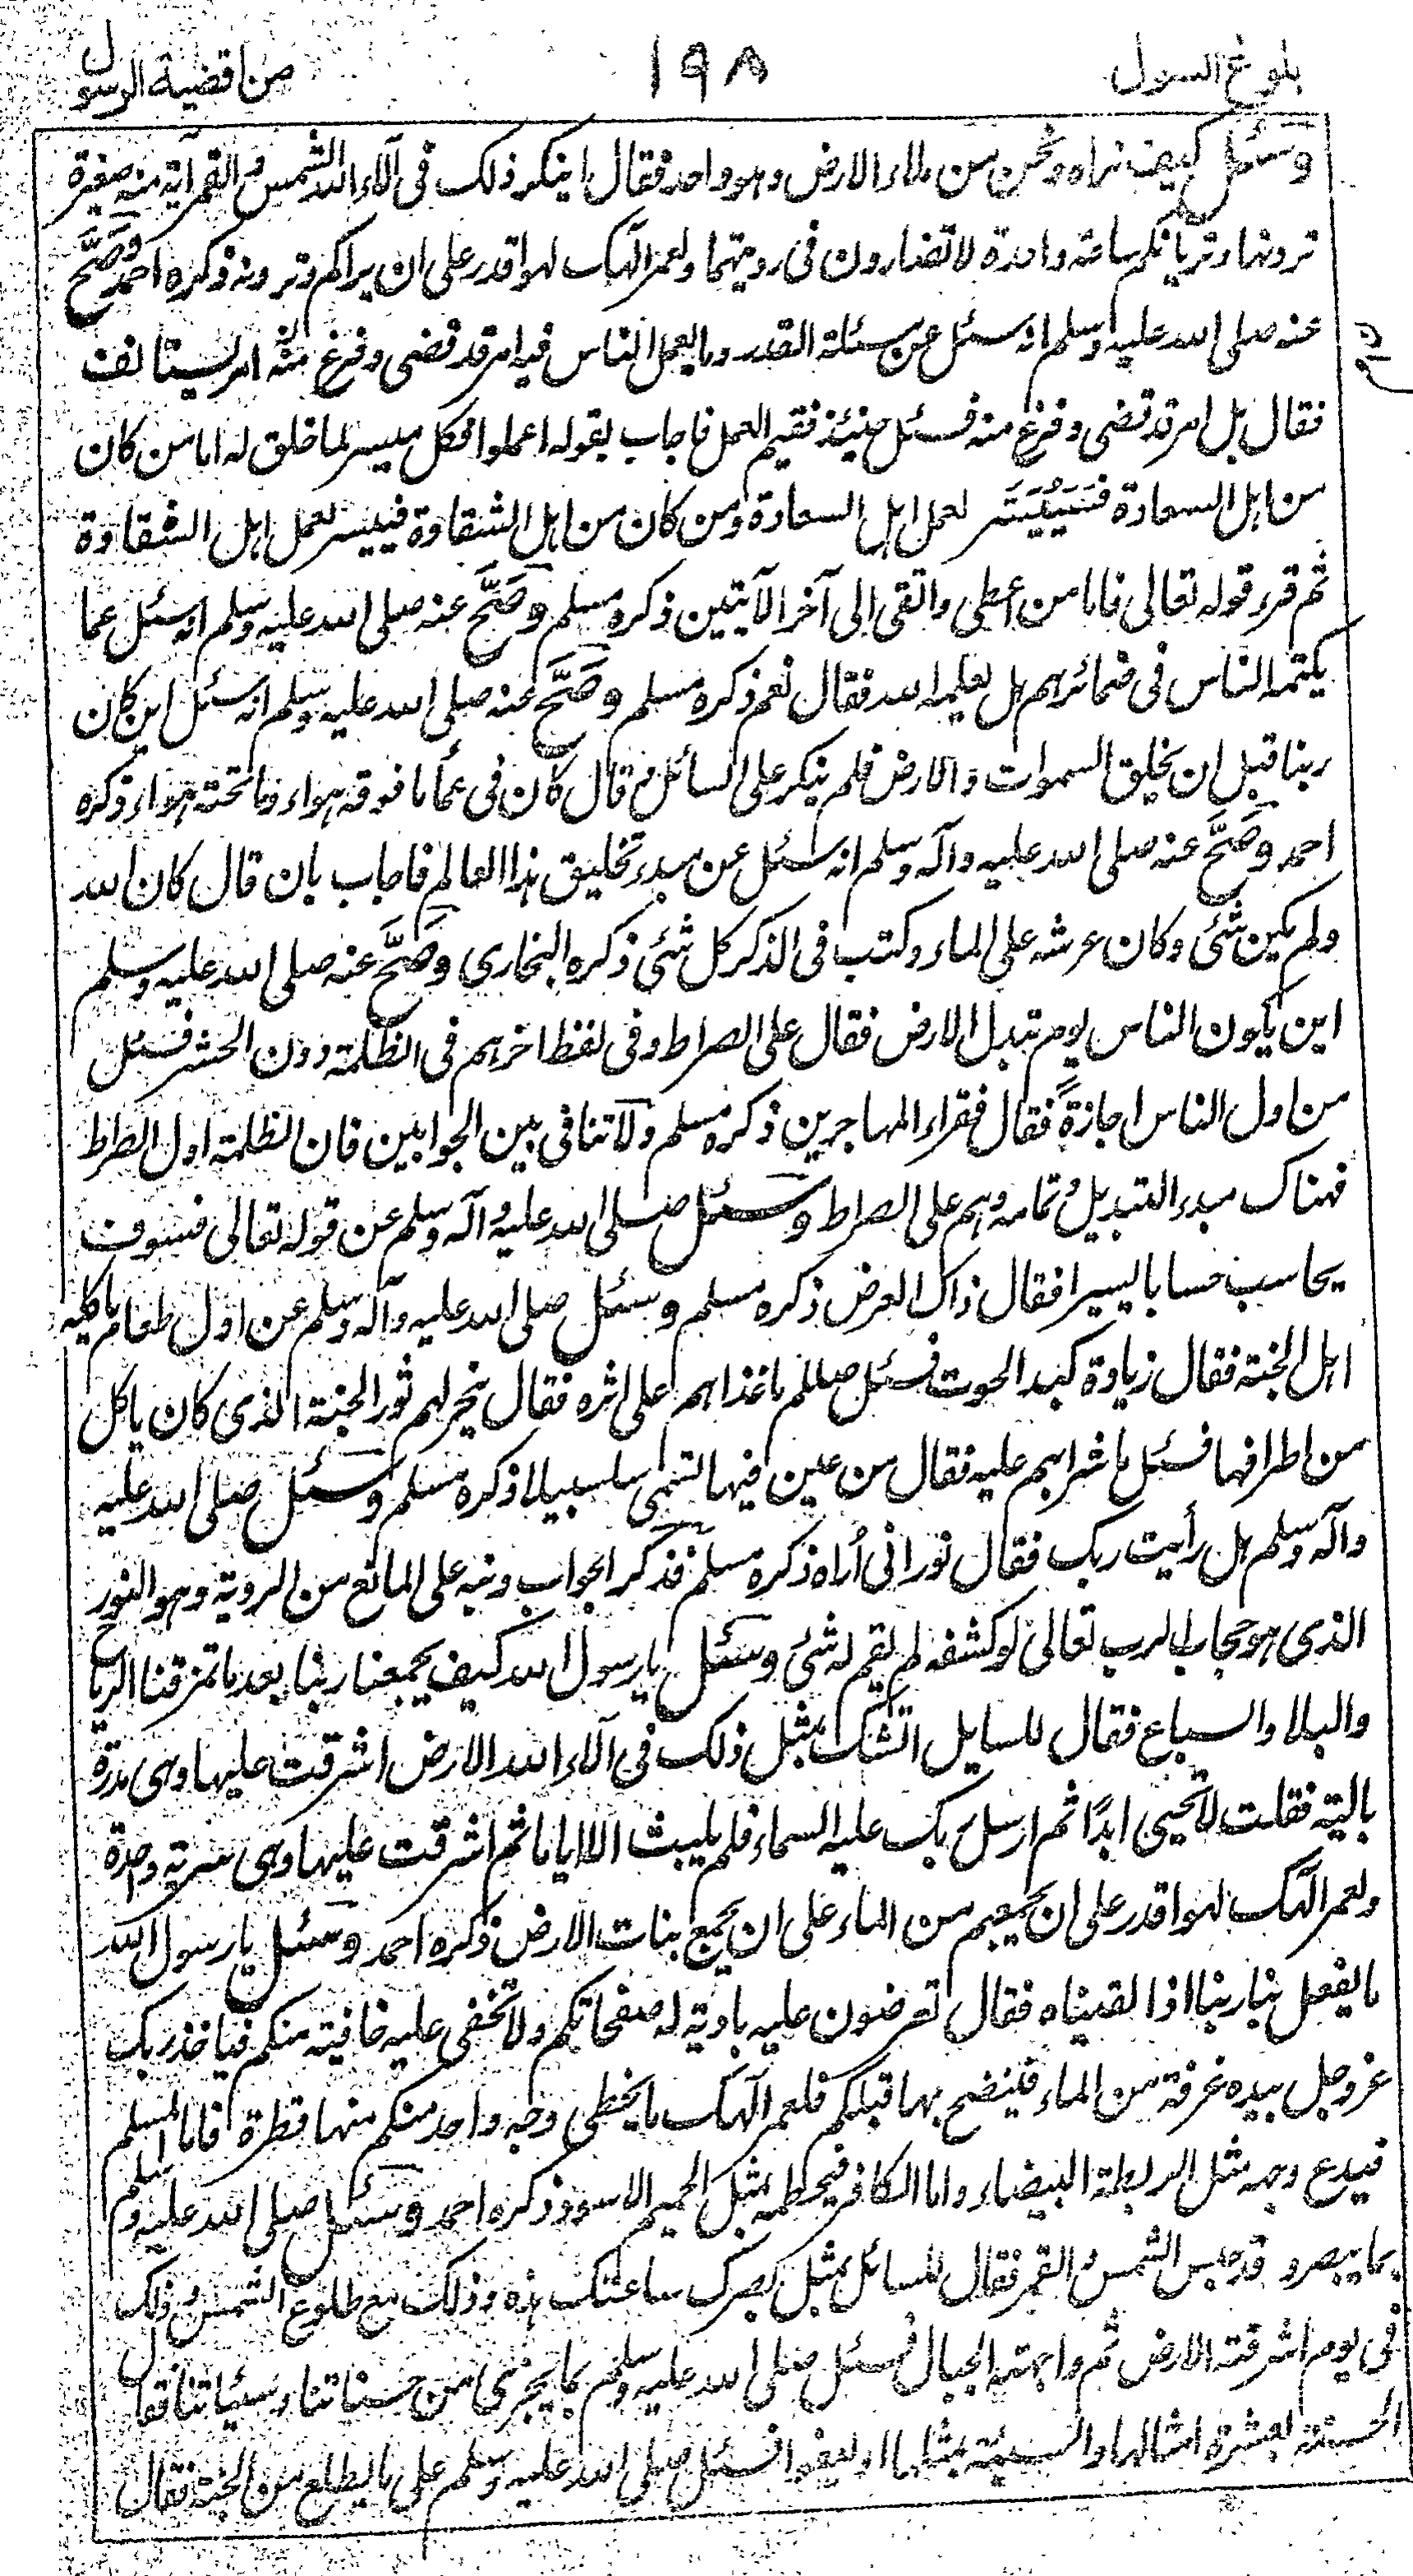 بلوغ السول
١٩٨
من اقضية الرسول
وسئل كيف نراه ونحن من ملاء الارض وهو واحد فقال اينكر ذلك فى آلاء الله الشمس والقمر آية منه صغيرة
ترونها وتريانكم ساعة واحدة لا تضارون فى رويتهما ولعمر الهك لهو اقدر على ان يراكم وترونه ذكره احمد وصَحَّ
عنه صلى الله عليه وسلم انه سئل عن مسئلة القدر وما يعمل الناس فيه امر قد قضى وفرغ منه ام يستانف
فقال بل امر قد قضى وفرغ منه فسئل حينئذ ففيم العمل فاجاب بقوله اعملوا فكل ميسر لما خلق له اما من كان
من اهل السعادة فسَيُيَسَّر لعمل اهل السعادة ومن كان من اهل الشقاوة فييسر لعمل اهل الشقاوة
ثم قرء قوله تعالى فاما من اعطى واتقى الى آخر الآيتين ذكره مسلم وصَحَّ عنه صلى الله عليه وسلم انه سئل عما
يكتمه الناس فى ضمائرهم هل يعلمه الله فقال نعم ذكره مسلم وصَحَّ عنه صلى الله عليه وسلم انه سئل اين كان
ربنا قبل ان يخلق السموات والارض فلم ينكر على السائل وقال كان فى عمأ ما فوقه هواء وما تحته هواء ذكره
احمد وصَحَّ عنه صلى الله عليه وآله وسلم انه سئل عن مبدء تخليق هذا العالم فاجاب بان قال كان الله
ولم يكن شئ وكان عرشه على الماء وكتب فى الذكر كل شئ ذكره البخارى وصَحَّ عنه صلى الله عليه وسلم
اين يكون الناس يوم تبدل الارض فقال على الصراط وفى لفظ اخر هم فى الظلمة دون الحشر فسئل
من اول الناس اجازةً فقال فقراء المهاجرين ذكره مسلم ولا تنافى بين الجوابين فان الظلمة اول الصراط
فهناك مبدء التبديل وتمامه وهم على الصراط وسئل صلى الله عليه وآله وسلم عن قوله تعالى فسوف
يحاسب حسابا يسيرا فقال ذاك العرض ذكره مسلم وسئل صلى الله عليه وآله وسلم عن اول طعام ياكله
اهل الجنة فقال زيادة كبد الحوت فسئل صللم ما غذاهم على اثره فقال ينحر لهم ثور الجنة الذى كان ياكل
من اطرافها فسئل ما شرابهم عليه فقال من عين فيها تسمى سلسبيلا ذكره مسلم وسئل صلى الله عليه
وآله وسلم هل رأيت ربك فقال نور انى أراه ذكره مسلم فذكر الجواب ونبه على المانع من الروية وهو النور
الذى هو حجاب الرب تعالى لو كشفه لم يقم له شئ وسئل يا رسول الله كيف يجمعنا ربنا بعد ما تمزقنا الرياح
والبلا والسباع فقال للسايل انبئك بمثل ذلك فى آلاء الله الارض اشرقت عليها وهى مدرة
بالية فقلت لا تحيى ابدًا ثم ارسل ربك عليه السماء فلم يلبث الا اياما ثم اشرقت عليها وهى سرية واحدة
ولعمر الهك لهو اقدر على ان يجمعهم من الماء على ان يجمع نبات الارض ذكره احمد وسئل يا رسول الله
ما يفعل بنا ربنا اذا لقيناه فقال تعرضون عليه بادية له صفحاتكم ولا تخفى عليه خافية منكم فياخذ ربك
عز وجل بيده غرفة من الماء فينضح بها قبلكم فلعمر الهك ما يخطى وجه واحد منكم منها قطرة فاما المسلم
فيدع وجهه مثل الريطة البيضاء واما الكافر فيخطمه بمثل الحميم الاسود ذكره احمد وسئل صلى الله عليه وسلم
بما يبصر وقد حبس الشمس والقمر فقال للسائل بمثل بصرك ساعتك هذه وذلك مع طلوع الشمس وذلك
فى يوم اشرقته الارض ثم واجهته الجبال فسئل صلى الله عليه وسلم بما يجزى من حسناتنا وسيئاتنا فقال
الحسنة بعشرة امثالها والسيئة بمثلها او يعفو افسئل صلى الله عليه وسلم على ما يطلع من الجنة فقال